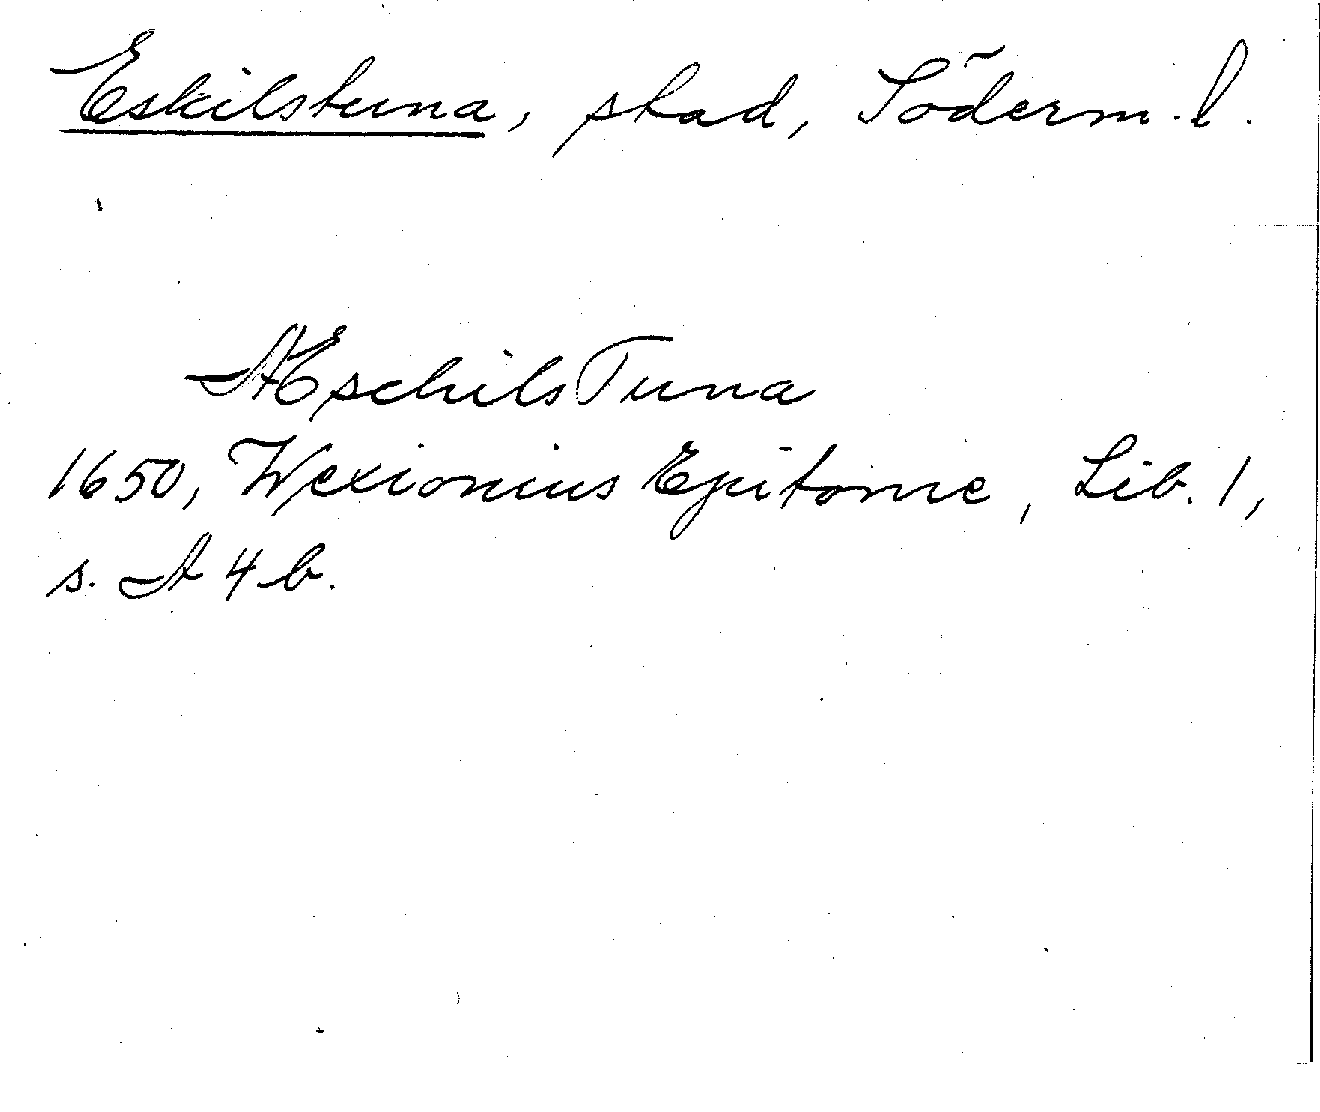 Eskilstuna, stad, Söderm. l.
ÆschilsTuna
1650, Wexionius Epitome, Lib. 1,
s. A 4 b.